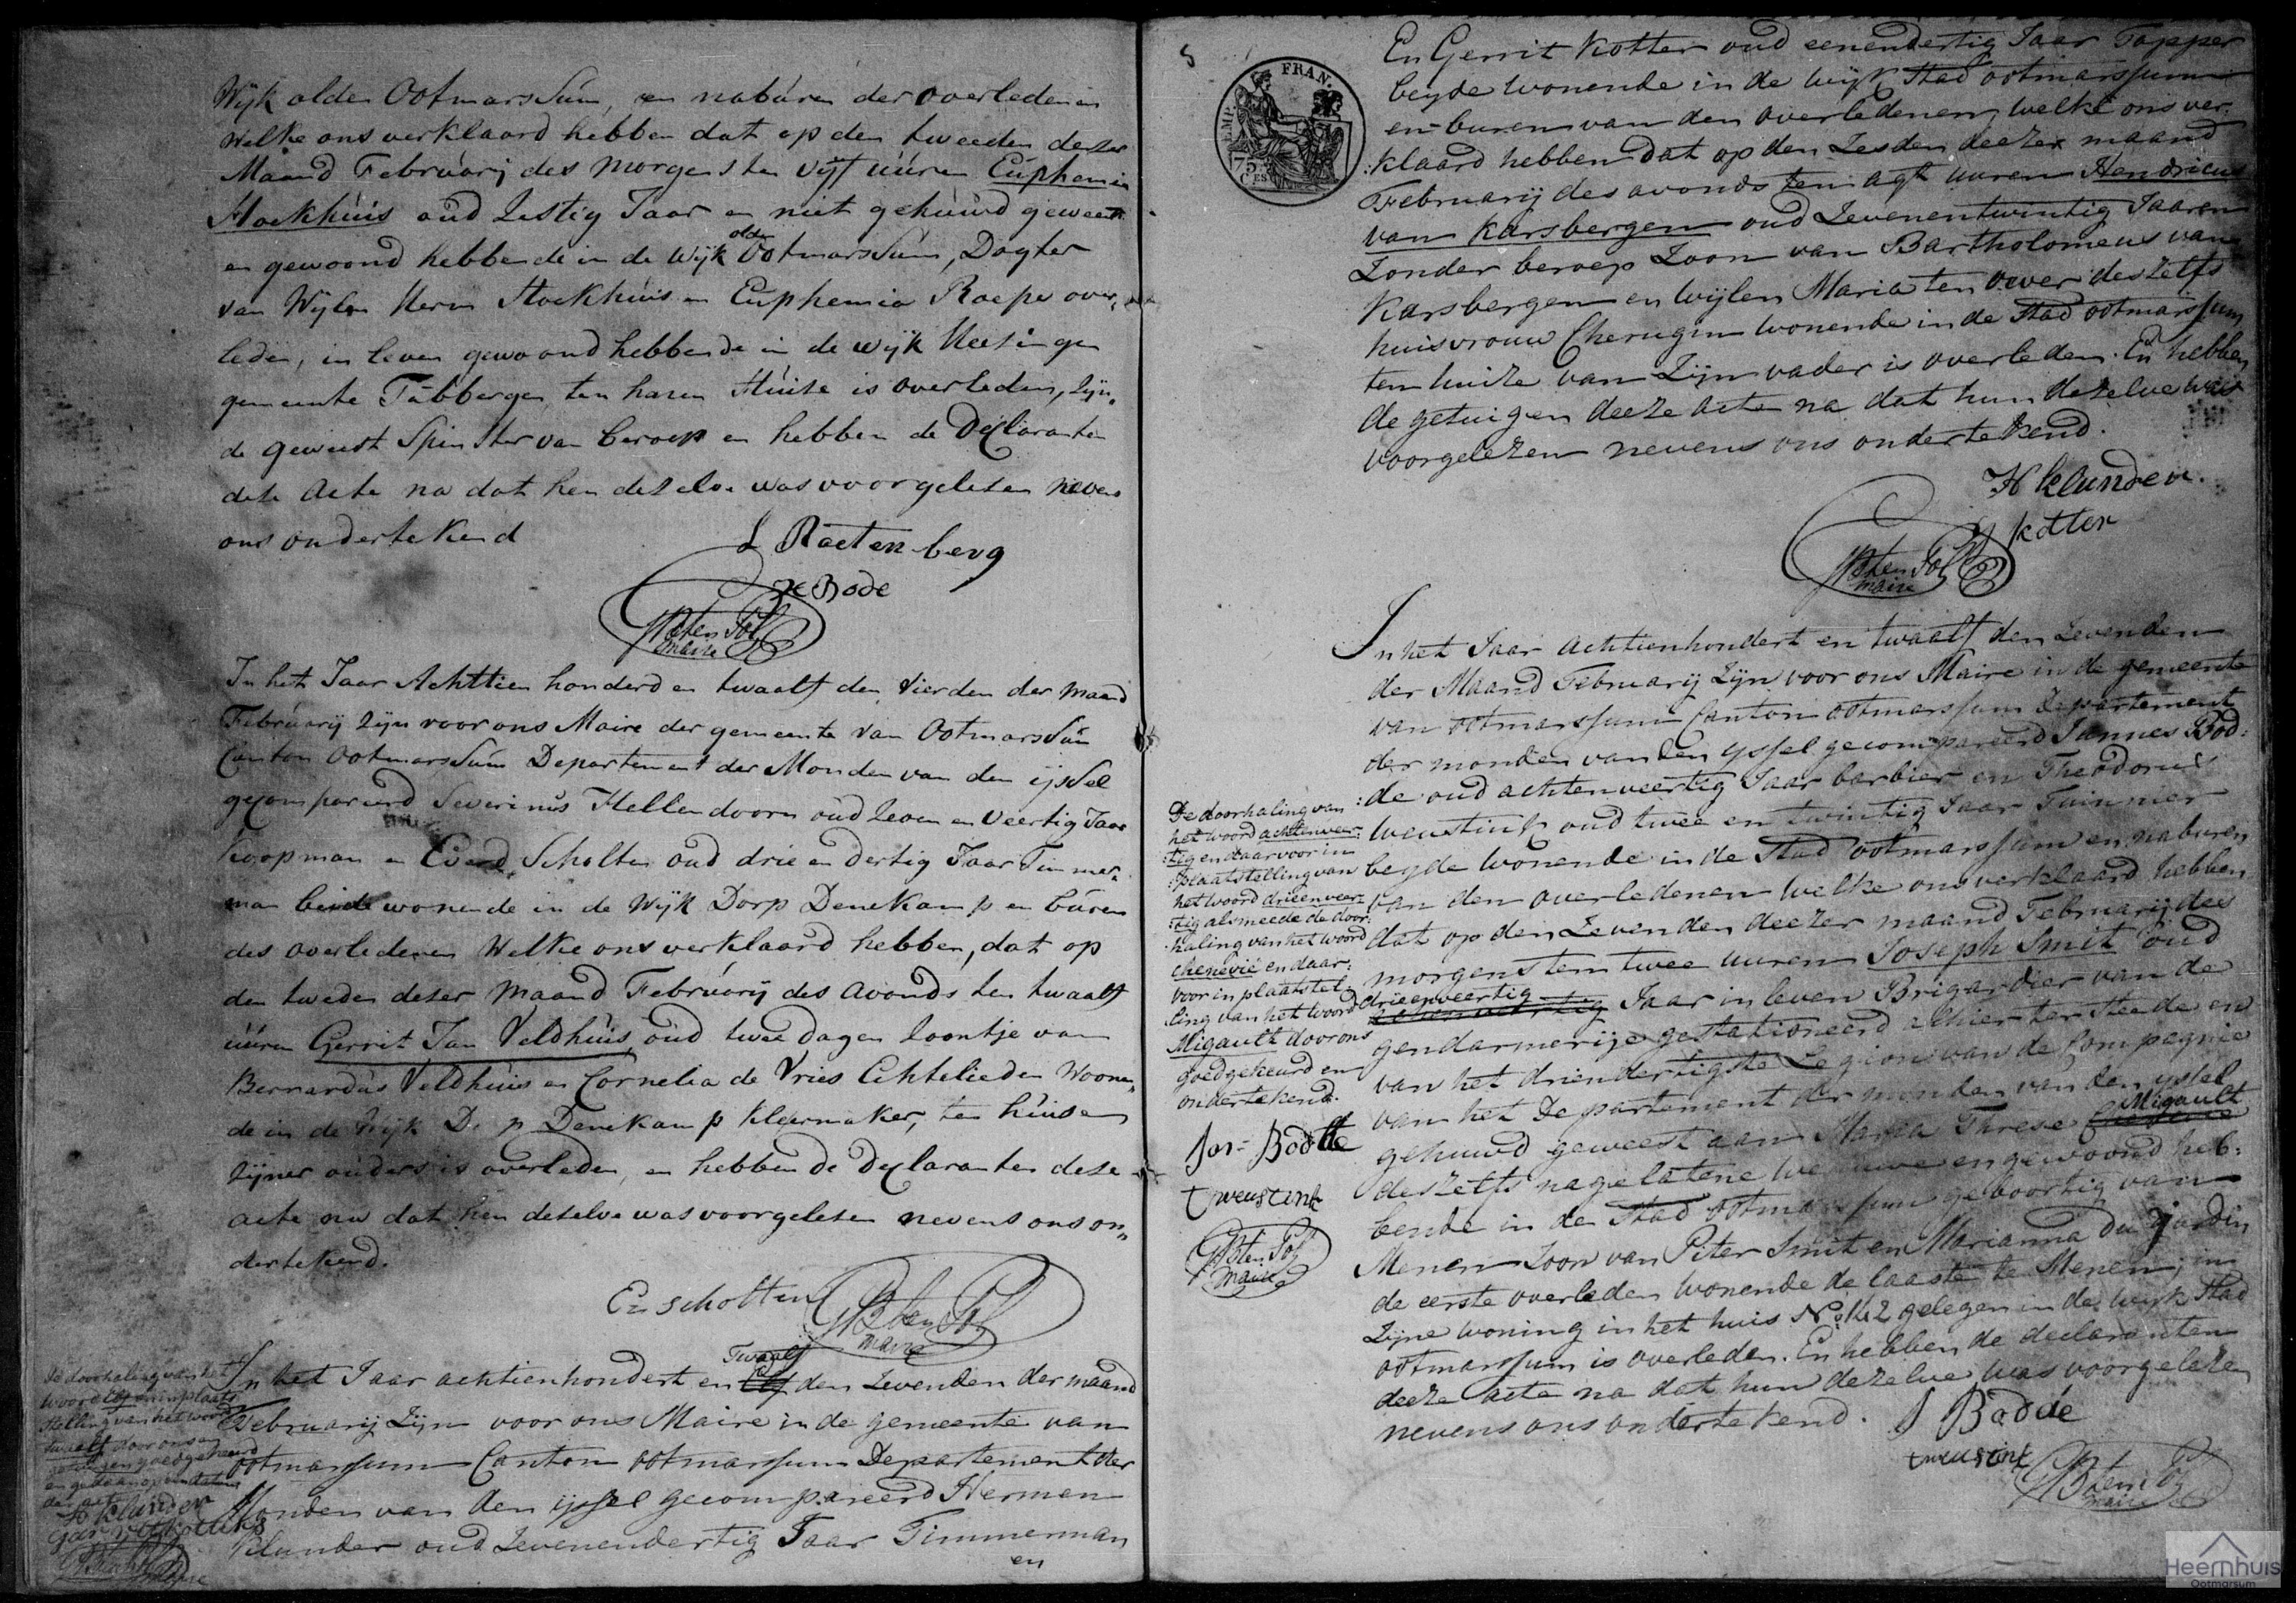 Wijk olden Ootmarssum, en naburen der overledenen
Welke ons verklaard hebben dat op den tweeden dezer
Maand Februarij des Morgens ten vijf uuren Euphemia
Stockhuis oud Zestig Jaar en niet gehuwd geweest
en gewoond hebbende in de Wijk olden Ootmarssum, Dogter
van Wijlen Herm Stockhuis en Euphemia Roepe over,,
leden, in leven gewoond hebbende in de wijk
gemeente Tubbergen, ten haren Huize is overleden, zijn,,
de geweest Spinster van beroep en hebben de Declaranten
deze Acte na dat hen dezelve was voorgelezen nevens
ons ondertekend
Raetenberg
Bode
GB ten Pol
maire
In het Jaar Achttien honderd en twaalf den Vierden der Maand
Februarij zijn voor ons Maire der gemeente van Ootmarssum
Canton Ootmarssum Departement der Monden van den ijssel
gecompareerd Severinus Hellendoorn oud Zeven en Veertig Jaar
Koopman en Everd Scholten oud drie en dertig Jaar Timmer,,
man beide wonende in de Wijk Dorp Denekamp en buren
des overledenen Welke ons verklaard hebben, dat op
den tweden dezer Maand Februarij des Avonds ten twaalf
uuren Gerrit Jan Veldhuis, oud twee dagen Zoontje van
Bernardus Veldhuis en Cornelia de Vries Echtelieden Woonen,,
de in de Wijk Denekamp Kleermaker, ten huise
zijner ouders is overleden, en hebben de declaranten deze
acte na dat hen dezelve was voorgelesen nevens ons on,,
dertekend.
Ev scholten
GB ten Pol
maire
De doorhaling van het
woord elf en in plaats
stelling van het woord
twaalf door ons
getuigen goedgekeurd
en
H klunder
GB ten Pol
maire
In het Jaar achtienhondert en Twaalf den Zevenden der maand
Februarij Zijn voor ons Maire in de gemeente van
ootmarssum Canton ootmarssum Departement der
Monden van den ijssel gecompareerd Hermen
Klunder oud Zevenendertig Jaar Timmerman
en
5
EMP. FRAN.
75
CES
En Gerrit Kotter oud eenendertig Jaar Tapper
beyde wonende in de wijk Stad ootmarssum
en buren van den overledenen, welke ons ver:
:klaard hebben dat op den Zesden deezer maand
Februarij des avonds ten agt uuren Hendricus
van Karsbergen oud Zevenentwintig Jaaren
Zonder beroep Zoon van Bartholomeus van
Karsbergen en wijlen Maria ten over deszelfs
huisvrouw Cherugin wonende in de Stad ootmarssum
ten huize van Zijn vader is overleden. En hebben
de getuigen deeze acte na dat hun dezelve was
voorgelezen nevens ons ondertekend.
H klunder.
kotter
GB ten Pol
maire
In het Jaar achtienhondert en twaalf den Zevenden
der Maand Februarij Zijn voor ons Maire in de gemeente
van ootmarssum Canton ootmarssum Departement
der monden van den yssel gecompareerd Jannes Bod:
:de oud achtenveertig Jaar barbier en Theodorus
weustink oud twee en twintig Jaar Tuinnier
beyde wonende in de Stad ootmarssum en naburen
van den overledenen welke ons verklaard hebben
dat op den Zevenden deezer maand Februarij des
morgens ten twee uuren Joseph Smit oud
drieenveertig Jaar in leven Brigardier van de
gendarmerije gestationeerd alhier ter steede en
van het driendertigste Legioen van de Compagnie
van het Departement der monden van den yssel
gehuwd geweest aan Maria Therese Migault
deszelfs nagelatene weduwe en gewoond heb:
bende in de Stad ootmarssum geboortig van
Menen Zoon van Piter Smit en Marianna du Jardin
de eerste overleden wonende de laaste te Menen, in
Zijne woning in het huis No. 142 gelegen in de wijk Stad
ootmarssum is overleden. En hebben de declaranten
deeze acte na dat hun dezelve was voorgelezen
nevens ons ondertekend.
J Bodde
t weustink
GB ten Pol
maire
De doorhaling van
het woord achtenveer:
:tig en daar voor in
:plaatstelling van
het woord drieenveer:
:tig alsmeede de door:
:haling van het woord
chenevie en daar:
voor in plaatstel:
:ling van het woord
Migault door ons
goedgekeurd en
ondertekend.
Jos= Bodde
t weustink
GB ten Pol
maire
Heemhuis
Ootmarsum